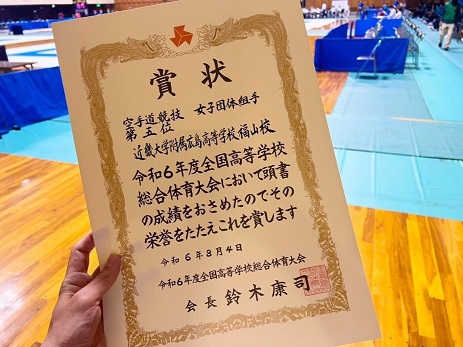 賞状
空手道競技 女子団体組手
第五位
近畿大学附属広島高等学校福山校
令和6年度全国高等学校
総合体育大会において頭書
の成績をおさめたのでその
栄誉をたたえこれを賞します
令和6年8月4日
令和6年度全国高等学校総合体育大会
会長 鈴木康司